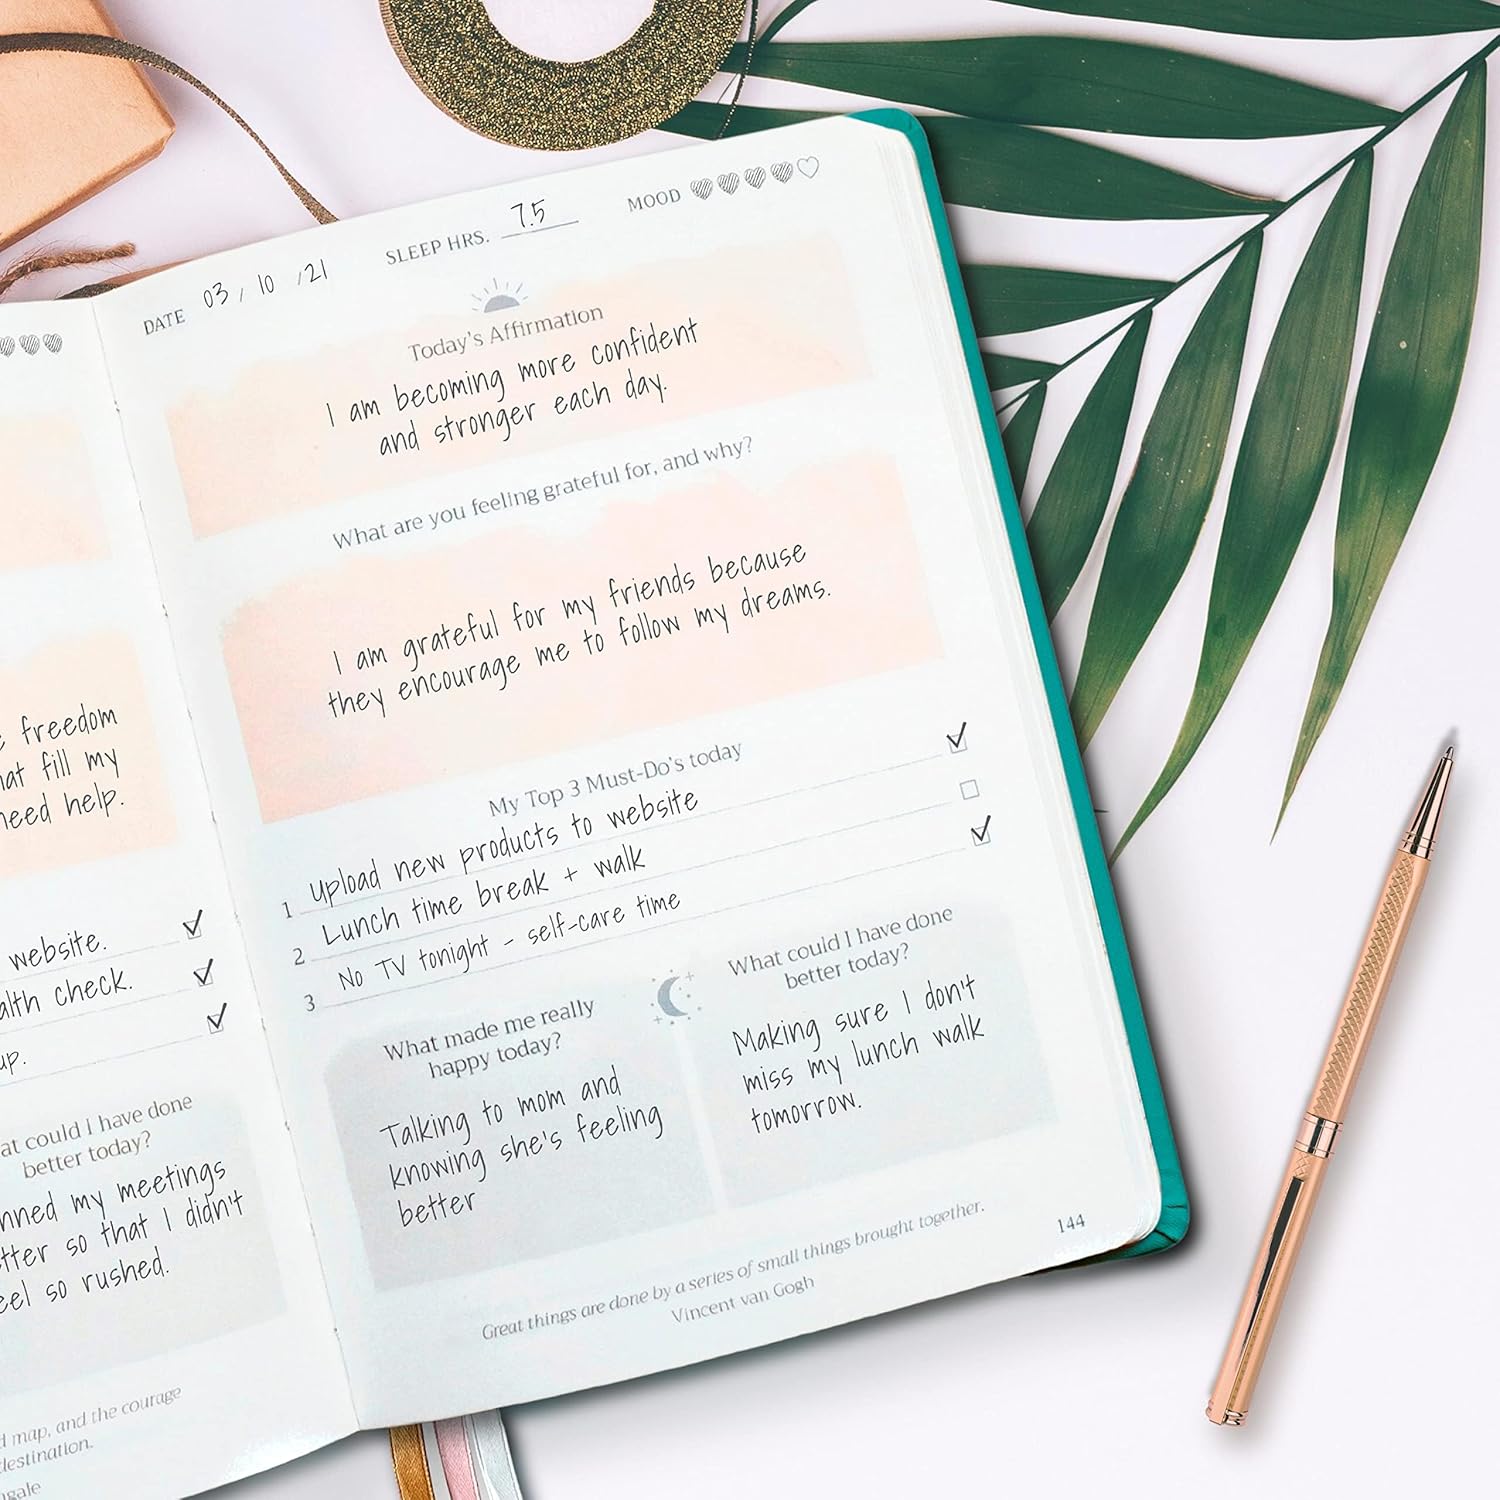 freedom
fill my
need help.
website.
check.
up.
could I have done
better today?
my meetings
so that I didn't
so rushed.
map, and the courage
destination.
DATE 03 / 10 / 21
SLEEP HRS. 7.5
MOOD
Today's Affirmation
I am becoming more confident
and stronger each day.
What are you feeling grateful for, and why?
I am grateful for my friends because
they encourage me to follow my dreams.
My Top 3 Must-Do's today
1 Upload new products to website
2 Lunch time break + walk
3 No TV tonight - self-care time
What made me really
happy today?
Talking to mom and
knowing she's feeling
better
What could I have done
better today?
Making sure I don't
miss my lunch walk
tomorrow.
Great things are done by a series of small things brought together.
Vincent van Gogh
144